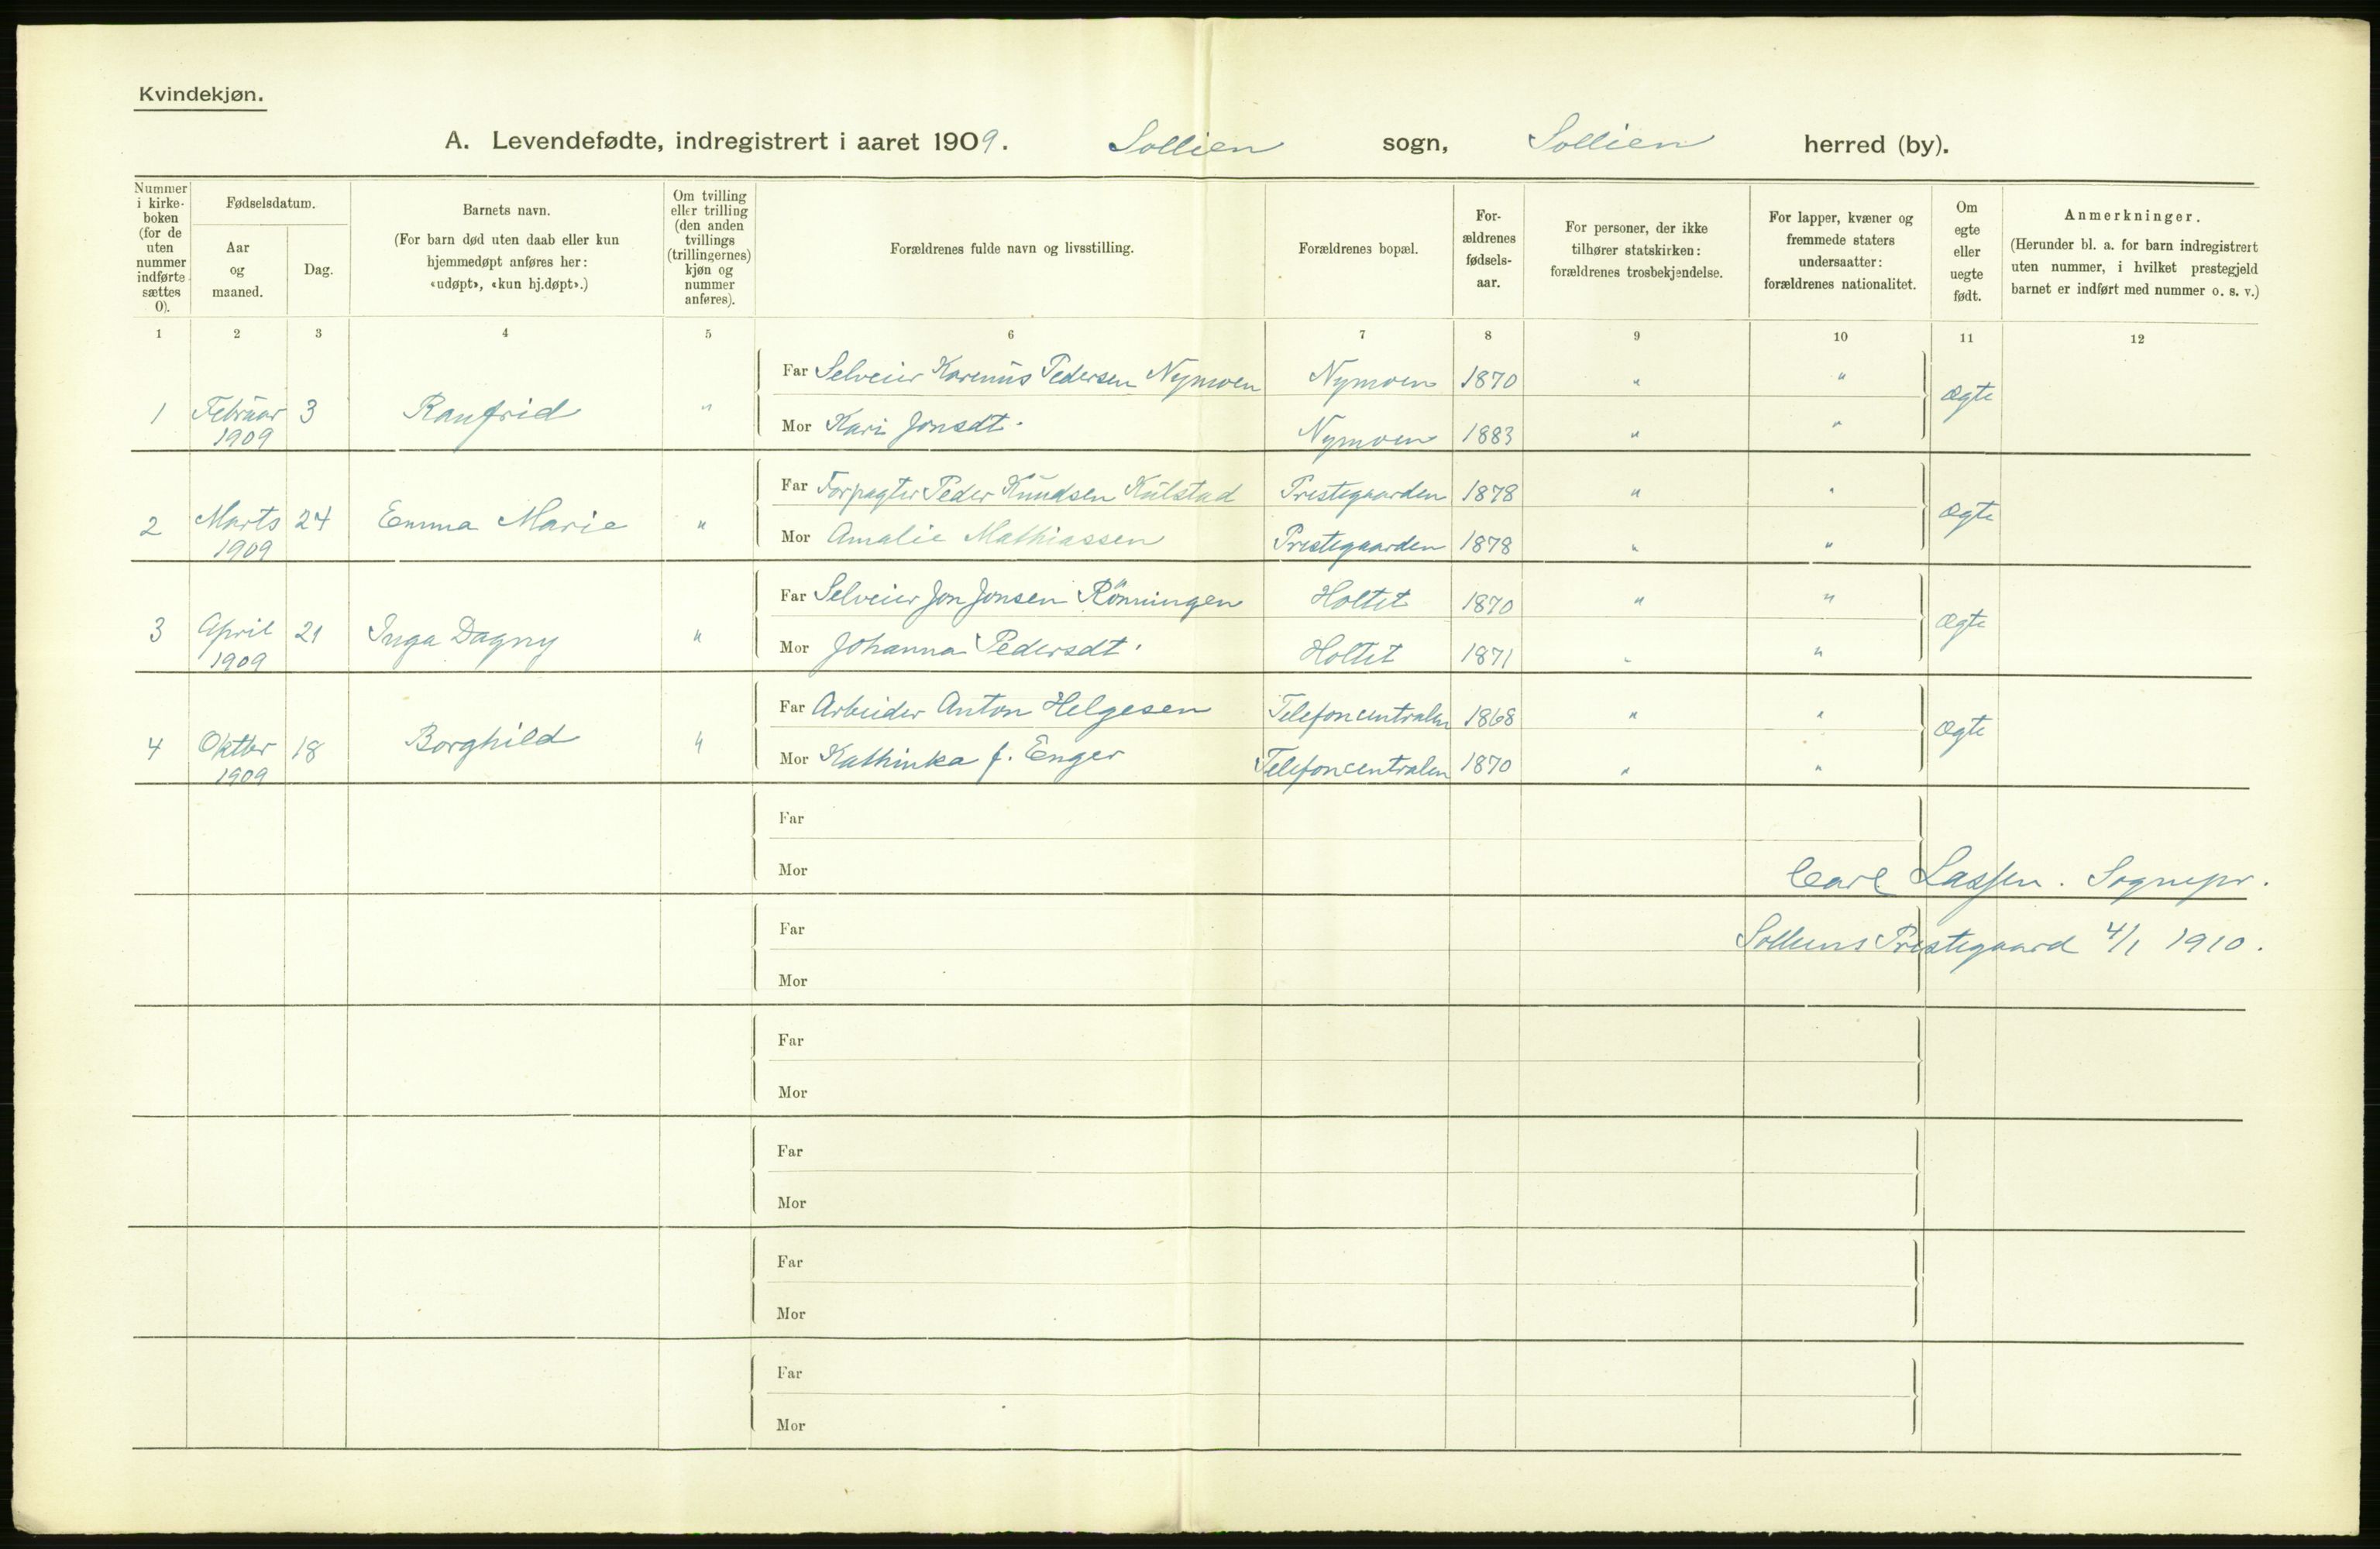 Kvindekjøn.
A. Levendefødte, indregistrert i aaret 1909. Sollien sogn, Sollien herred (by).
Nummer i kirkeboken (for de uten nummer indførte sættes 0).
Fødselsdatum.
Aar og maaned.
Dag.
Barnets navn.
(For barn død uten daab eller kun hjemmedøpt anføres her: «udøpt», «kun hj.døpt».)
Om tvilling eller trilling (den anden tvillings (trillingernes) kjøn og nummer anføres).
Forældrenes fulde navn og livsstilling.
Forældrenes bopæl.
Forældrenes fødselsaar.
For personer, der ikke tilhører statskirken: forældrenes trosbekjendelse.
For lapper, kvæner og fremmede staters undersaatter: forældrenes nationalitet.
Om egte eller uegte født.
Anmerkninger.
(Herunder bl. a. for barn indregistrert uten nummer, i hvilket prestegjeld barnet er indført med nummer o. s. v.)
1 2 3 4 5 6 7 8 9 10 11 12
Far Selveier Karenus Pedersen Nymoen Nymoen 1870 " "
1 Februar 1909 3 Ranfrid " Ægte
Mor Kari Jonsdt. Nymoen 1883 " "
Far Forpagter Peder Knudsen Kulstad Prestegaarden 1878 " "
2 Marts 1909 24 Emma Marie " Ægte
Mor Amalie Mathiassen Prestegaarden 1878 " "
Far Selveier Jon Jonsen Rönningen Holtet 1870 " "
3 April 1909 21 Inga Dagny " Ægte
Mor Johanna Pedersdt. Holtet 1871 " "
Far Arbeider Anton Helgesen Telefoncentralen 1868 " "
4 Oktbr 1909 18 Borghild " Ægte
Mor Kathinka f. Enger Telefoncentralen 1870 " "
Far
Mor
Carl Lassen. Sognepr.
Far
Solliens Prestegaard 4/1 1910.
Mor
Far
Mor
Far
Mor
Far
Mor
Far
Mor